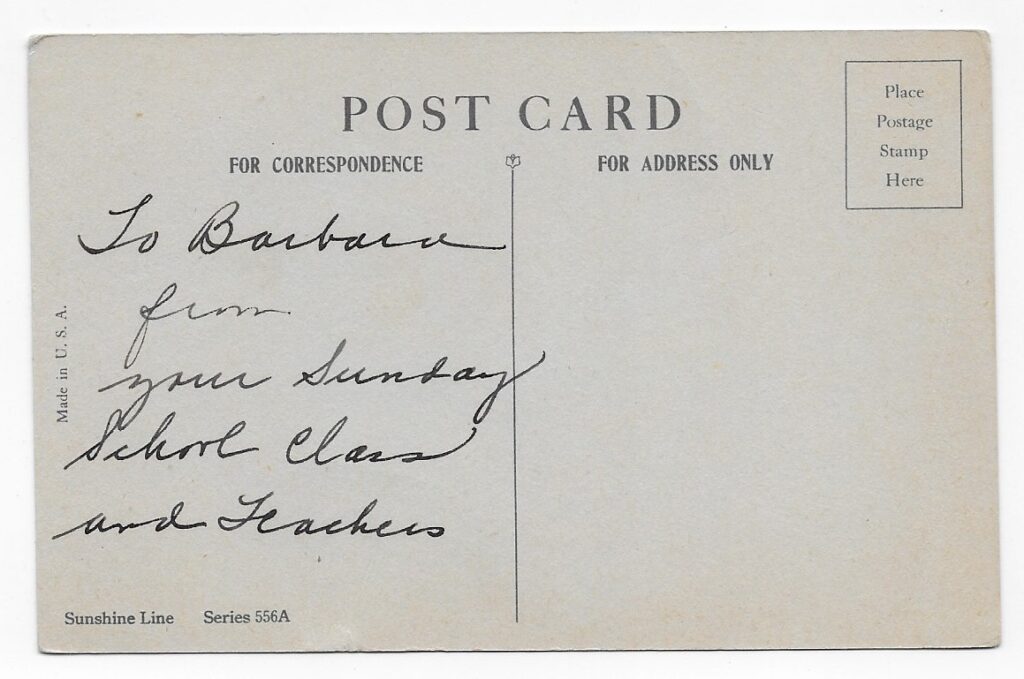 POST CARD
Place
Postage
Stamp
Here
FOR CORRESPONDENCE
FOR ADDRESS ONLY
To Barbara
from
your Sunday
School Class
and Teachers
Made in U. S. A.
Sunshine Line Series 556A